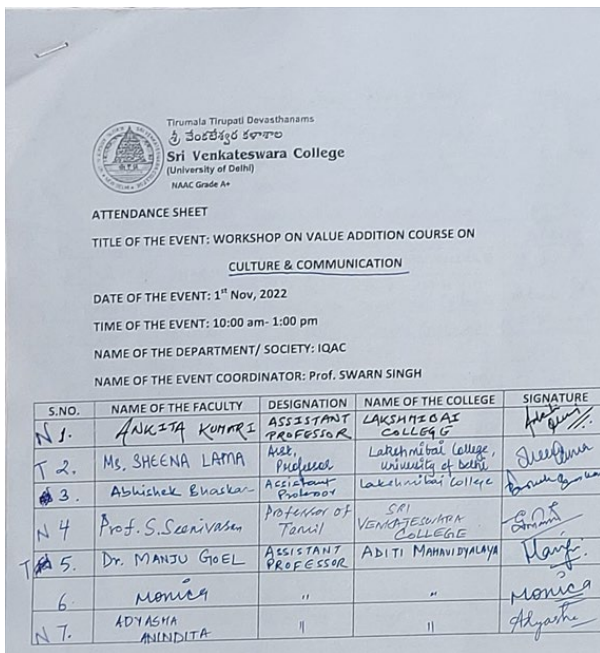 Tirumala Tirupati Devasthanams
శ్రీ వేంకటేశ్వర కళాశాల
Sri Venkateswara College
(University of Delhi)
NAAC Grade A+
ATTENDANCE SHEET
TITLE OF THE EVENT: WORKSHOP ON VALUE ADDITION COURSE ON
CULTURE & COMMUNICATION
DATE OF THE EVENT: 1st Nov, 2022
TIME OF THE EVENT: 10:00 am- 1:00 pm
NAME OF THE DEPARTMENT/ SOCIETY: IQAC
NAME OF THE EVENT COORDINATOR: Prof. SWARN SINGH
S.NO. NAME OF THE FACULTY DESIGNATION NAME OF THE COLLEGE SIGNATURE
N 1. ANKITA KUMARI ASSISTANT PROFESSOR LAKSHMIBAI COLLEGE
T 2. Ms. SHEENA LAMA Asst. Professor Lakshmibai College, University of Delhi
3 Abhishek Bhaskar Assistant Professor Lakshmibai College
N 4 Prof. S. Seenivasan Professor of Tamil SRI VENKATESWARA COLLEGE
T 5. Dr. MANJU GOEL ASSISTANT PROFESSOR ADITI MAHAVIDYALAYA Manju
6 Monica " " Monica
N 7. ADYASHA ANINDITA " " Adyasha